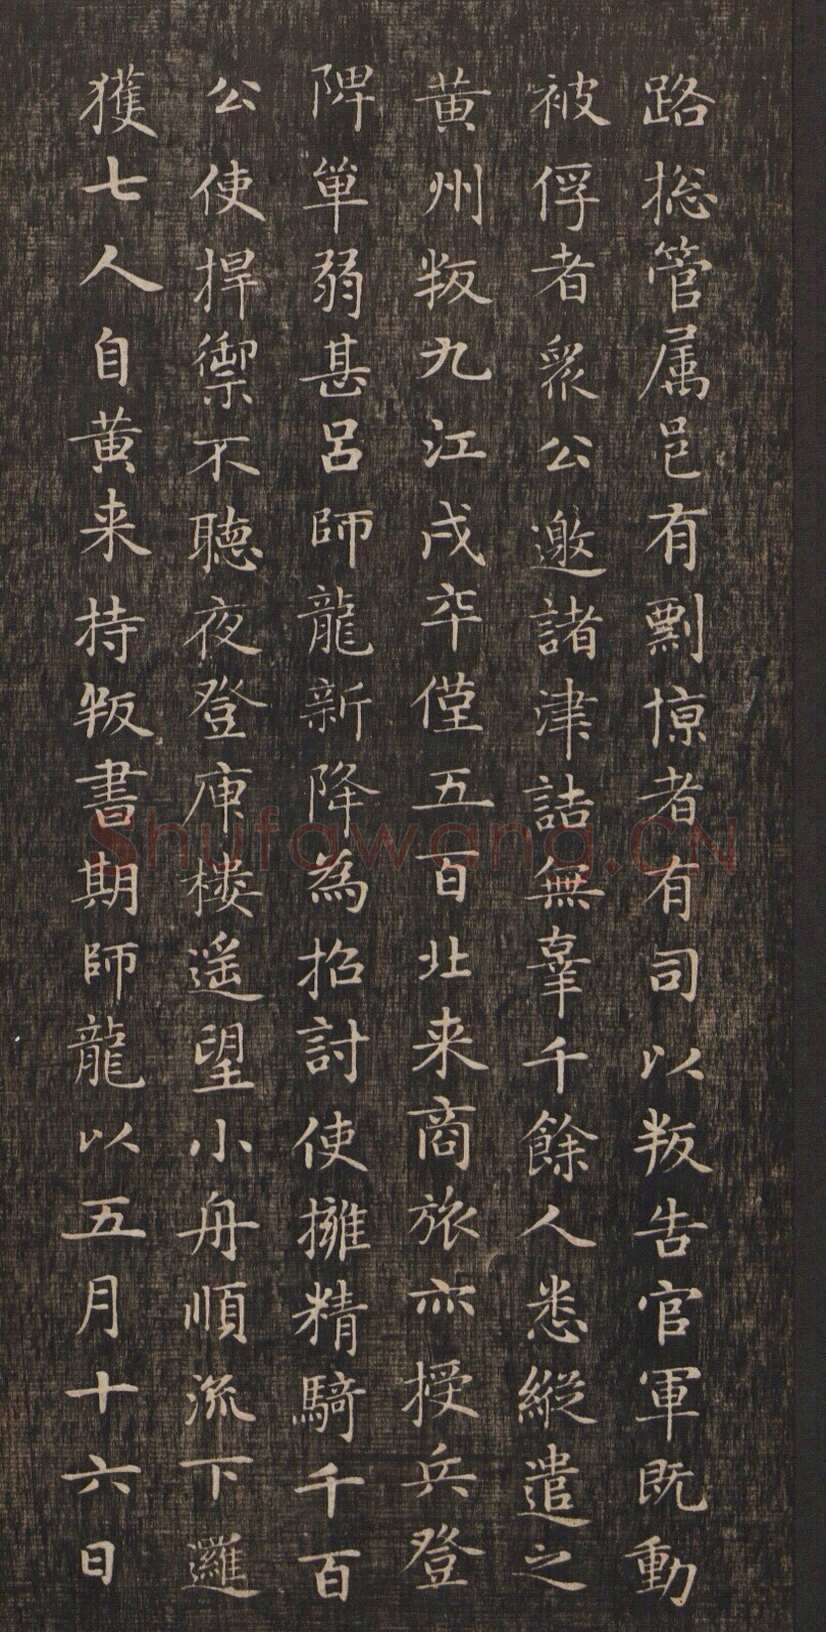 路揔管属邑有剽掠者有司以叛告官軍既動
被俘者衆公邀諸津詰無辜千餘人悉縱遣之
黄州叛九江戍卒僅五百北来商旅亦授兵登
陴單弱甚呂師龍新降為招討使擁精騎千百
公使捍禦不聽夜登庾楼遥望小舟順流下邏
獲七人自黄来持叛書期師龍以五月十六日
Shufawang.CN